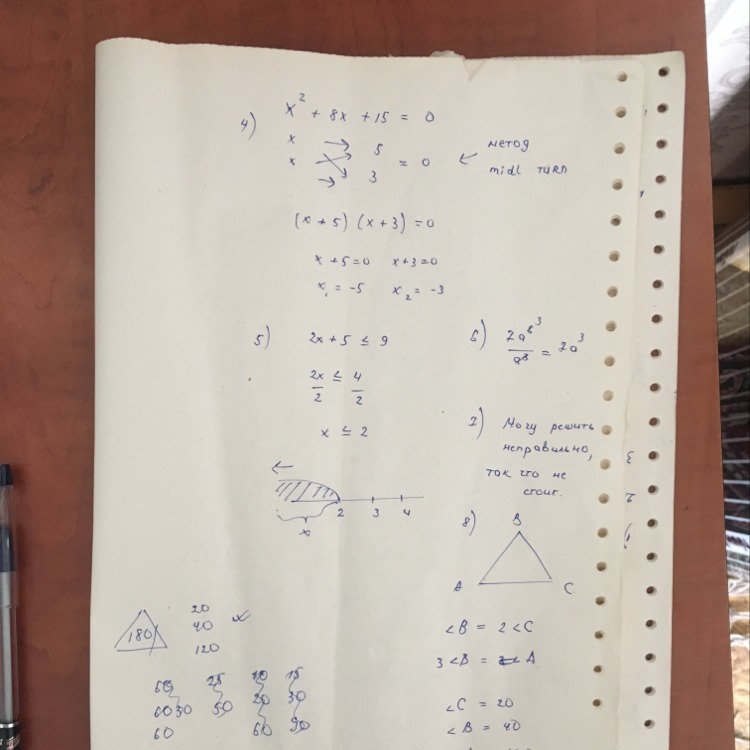 4) x² + 8x + 15 = 0
x 5
x 3 = 0 ← метод
midl turn
(x + 5) (x + 3) = 0
x + 5 = 0 x + 3 = 0
x₁ = -5 x₂ = -3
5) 2x + 5 ≤ 9
2x/2 ≤ 4/2
x ≤ 2
2 3 4
x
6)
= 7a³
7) Могу решить
неправильно,
так что не
стоит.
8) B
A C
∠B = 2∠C
3∠B = ∠A
∠C = 20
∠B = 40
180
20
40
120
60 25 10 15
60 30 50 20 30
60 60 90
3
2
1)